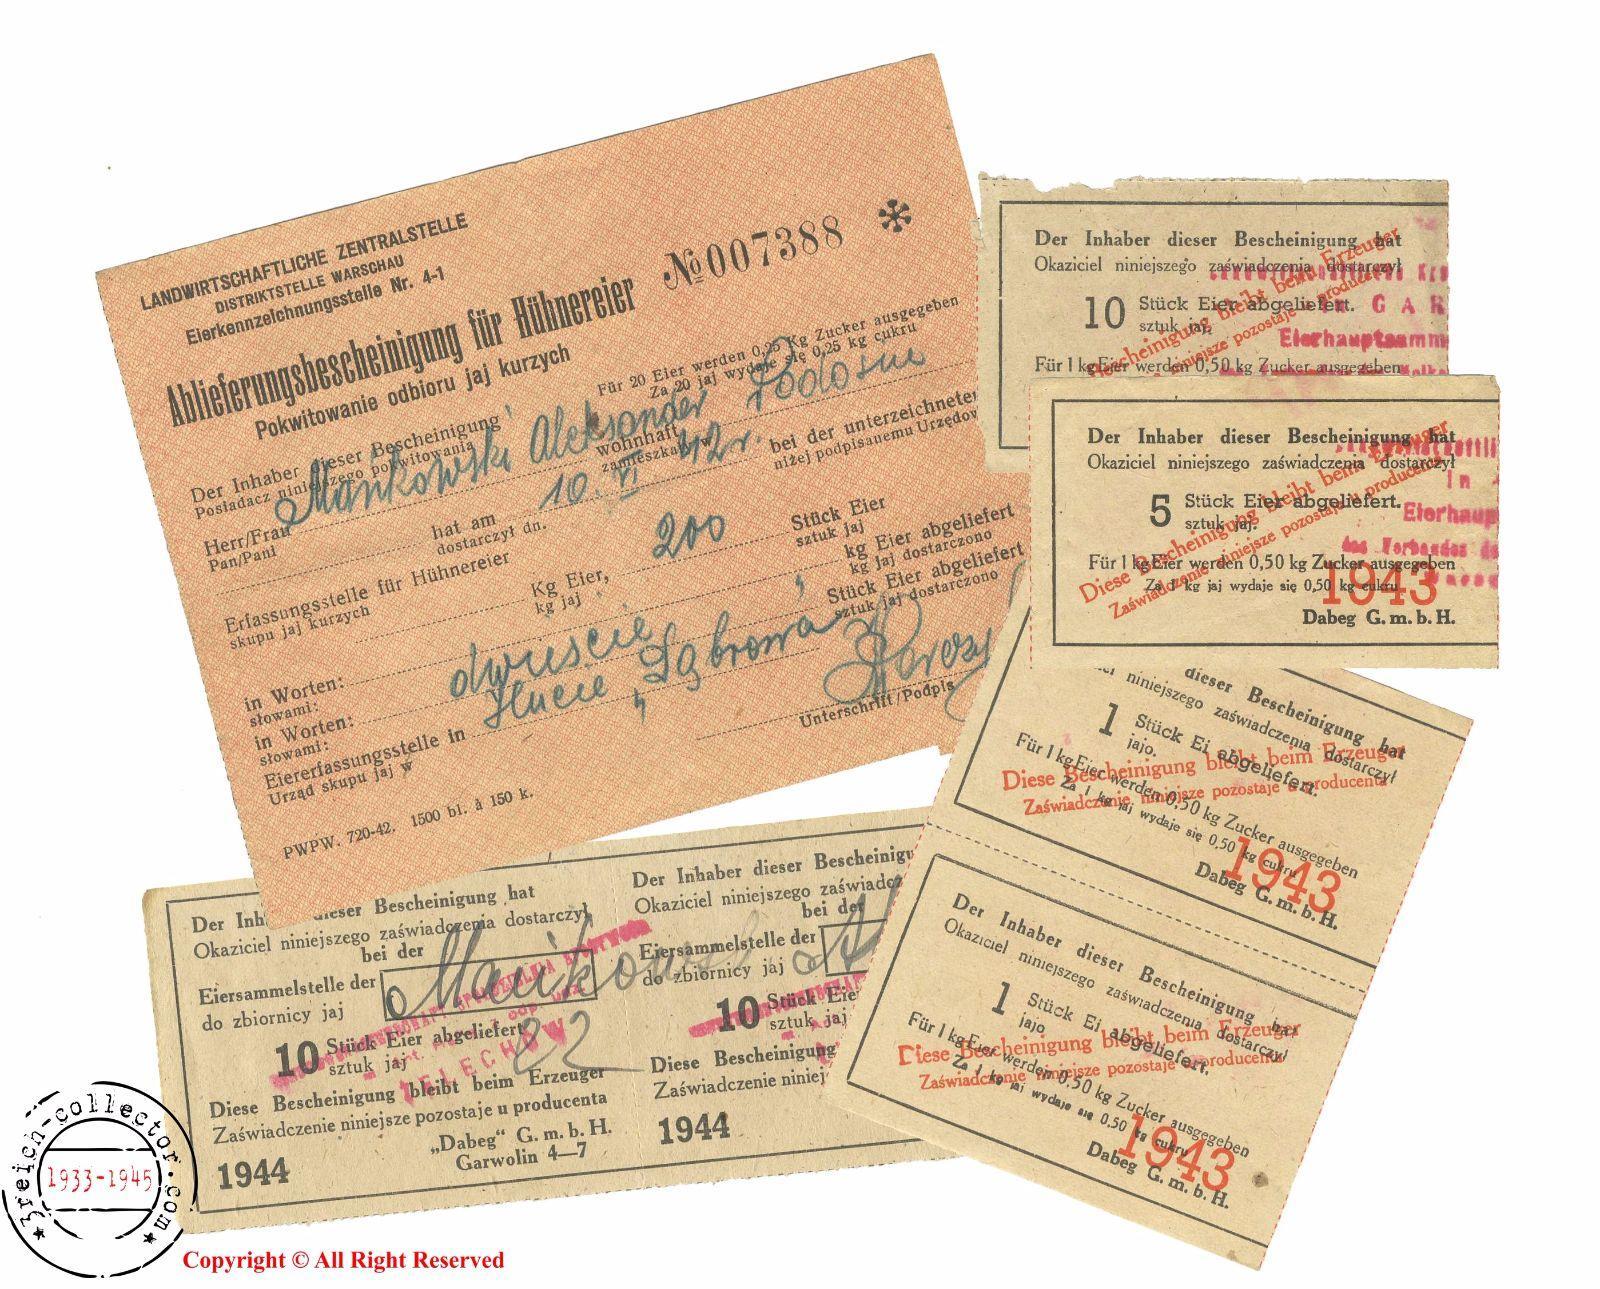 LANDWIRTSCHAFTLICHE ZENTRALSTELLE
DISTRIKTSTELLE WARSCHAU
Eierkennzeichnungsstelle Nr. 4-1
№007388 *
Ablieferungsbescheinigung für Hühnereier
Pokwitowanie odbioru jaj kurzych
Für 20 Eier werden 0,25 Kg Zucker ausgegeben
Za 20 jaj wydaje się 0,25 kg cukru
Der Inhaber dieser Bescheinigung
Posiadacz niniejszego pokwitowania
Herr/Frau Mankowski Aleksander wohnhaft
Pan/Pani zamieszkały w
hat am 10. VI 42 r. bei der unterzeichneten
dostarczył dn. niżej podpisanemu Urzędow
Erfassungsstelle für Hühnereier Kg Eier, 200 Stück Eier
skupu jaj kurzych kg jaj sztuk jaj
in Worten: kg Eier abgeliefert
słowami: kg jaj dostarczono
in Worten: dwieście Stück Eier abgeliefert
słowami: sztuk jaj dostarczono
Eiererfassungsstelle in
Urząd skupu jaj w
Unterschrift/Podpis
PWPW. 720-42. 1500 bl. à 150 k.
Der Inhaber dieser Bescheinigung hat
Okaziciel niniejszego zaświadczenia dostarczył
10 Stück Eier abgeliefert.
sztuk jaj.
Für 1 kg Eier werden 0,50 kg Zucker ausgegeben
Diese Bescheinigung bleibt beim Erzeuger
Zaświadczenie niniejsze pozostaje u producenta
GAR
Eierhauptsamm
Der Inhaber dieser Bescheinigung hat
Okaziciel niniejszego zaświadczenia dostarczył
5 Stück Eier abgeliefert.
sztuk jaj.
Für 1 kg Eier werden 0,50 kg Zucker ausgegeben
Za 1 kg jaj wydaje się 0,50 kg cukru
1943
Dabeg G. m. b. H.
Diese Bescheinigung bleibt beim Erzeuger
Zaświadczenie niniejsze pozostaje u producenta
in
Eierhaup
des Verbandes de
dieser Bescheinigung hat
niniejszego zaświadczenia dostarczył
1 Stück Ei abgeliefert.
jajo.
Für 1 kg Eier werden 0,50 kg Zucker ausgegeben
Za 1 kg jaj wydaje się 0,50 kg cukru
Diese Bescheinigung bleibt beim Erzeuger
Zaświadczenie niniejsze pozostaje u producenta
1943
Dabeg G. m. b. H.
Der Inhaber dieser Bescheinigung hat
Okaziciel niniejszego zaświadczenia dostarczył
1 Stück Ei abgeliefert.
jajo
Für 1 kg Eier werden 0,50 kg Zucker ausgegeben
Za 1 kg jaj wydaje się 0,50 kg cukru
Diese Bescheinigung bleibt beim Erzeuger
Zaświadczenie niniejsze pozostaje u producenta
1943
Dabeg G. m. b. H.
Der Inh dieser Bescheinigung hat
Okaziciel niniejszego zaświadczenia dostarczył
bei der
Eiersammelstelle der
do zbiornicy jaj
10 Stück Eier abgeliefert
sztuk jaj
22
Diese Bescheinigung bleibt beim Erzeuger
Zaświadczenie niniejsze pozostaje u producenta
„Dabeg" G. m. b. H.
Garwolin 4—7
1944
Der Inhaber dieser Bescheinigu
Okaziciel niniejszego zaświadc
bei der
Eiersammelstelle der
do zbiornicy jaj
10 Stück Eie
sztuk jaj
Diese Bescheinigung
Zaświadczenie niniej
1944
3reich-collector.com
1933-1945
Copyright © All Right Reserved